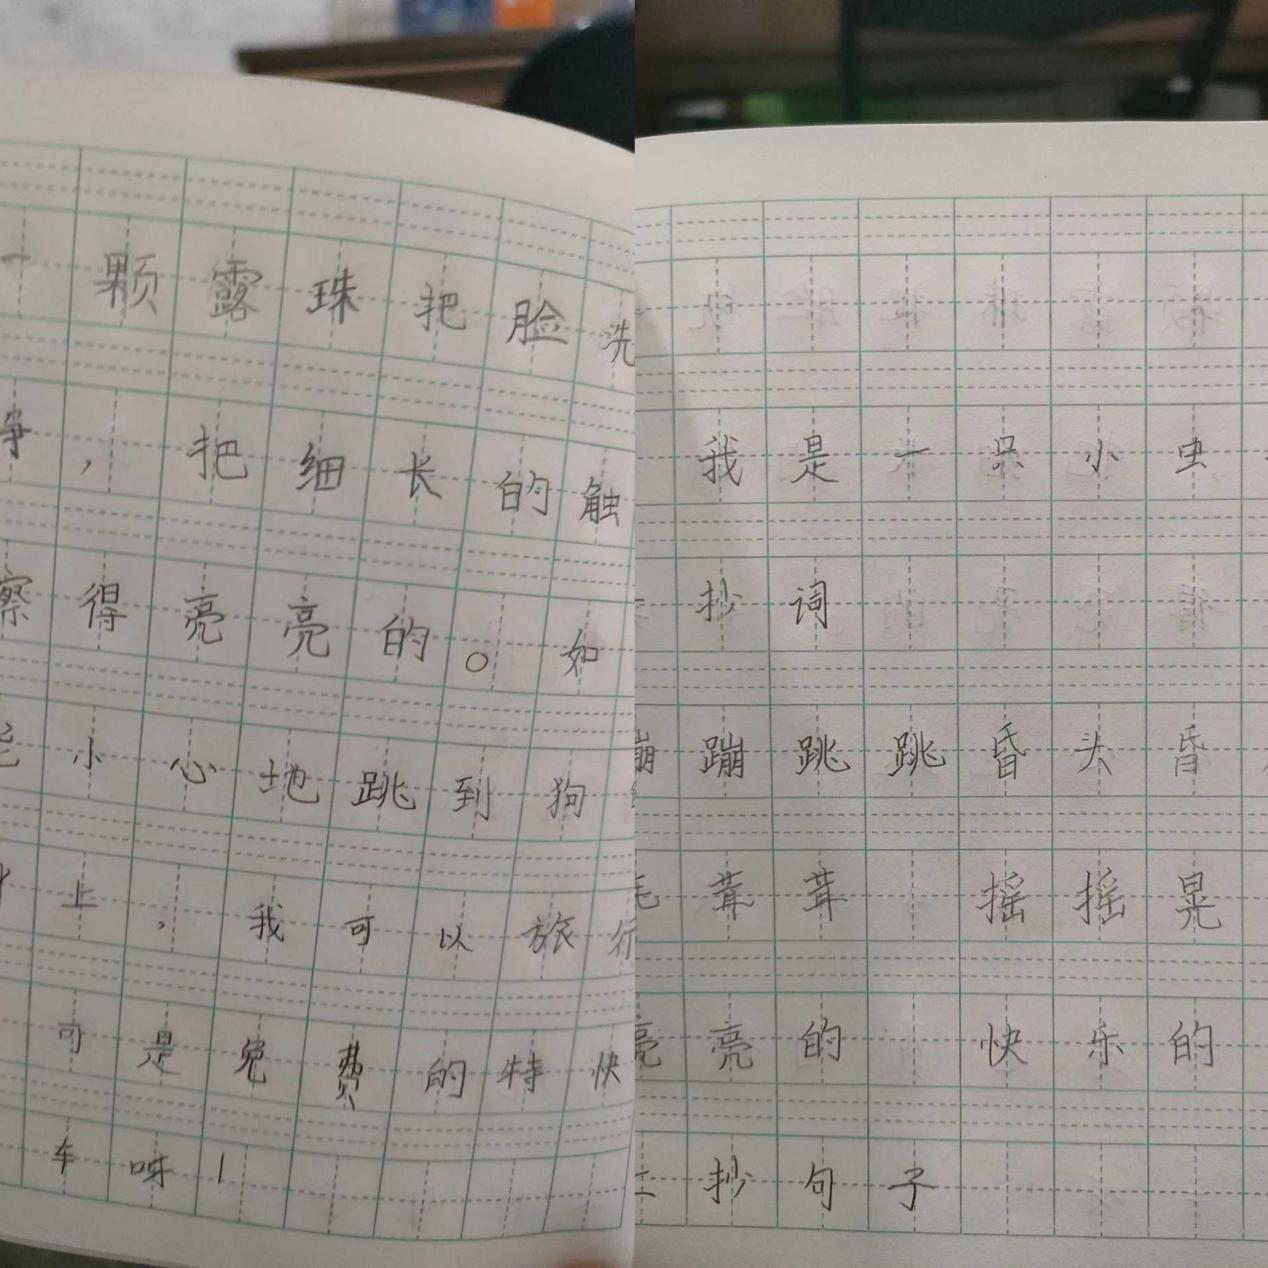 一颗露珠把脸洗
净，把细长的触
擦得亮亮的。如
小心地跳到狗
上，我可以旅行
可是免费的特快
车呀！
我是一只小虫
抄词
蹦蹦跳跳昏头昏
毛茸茸 摇摇晃
亮亮的 快乐的
抄句子